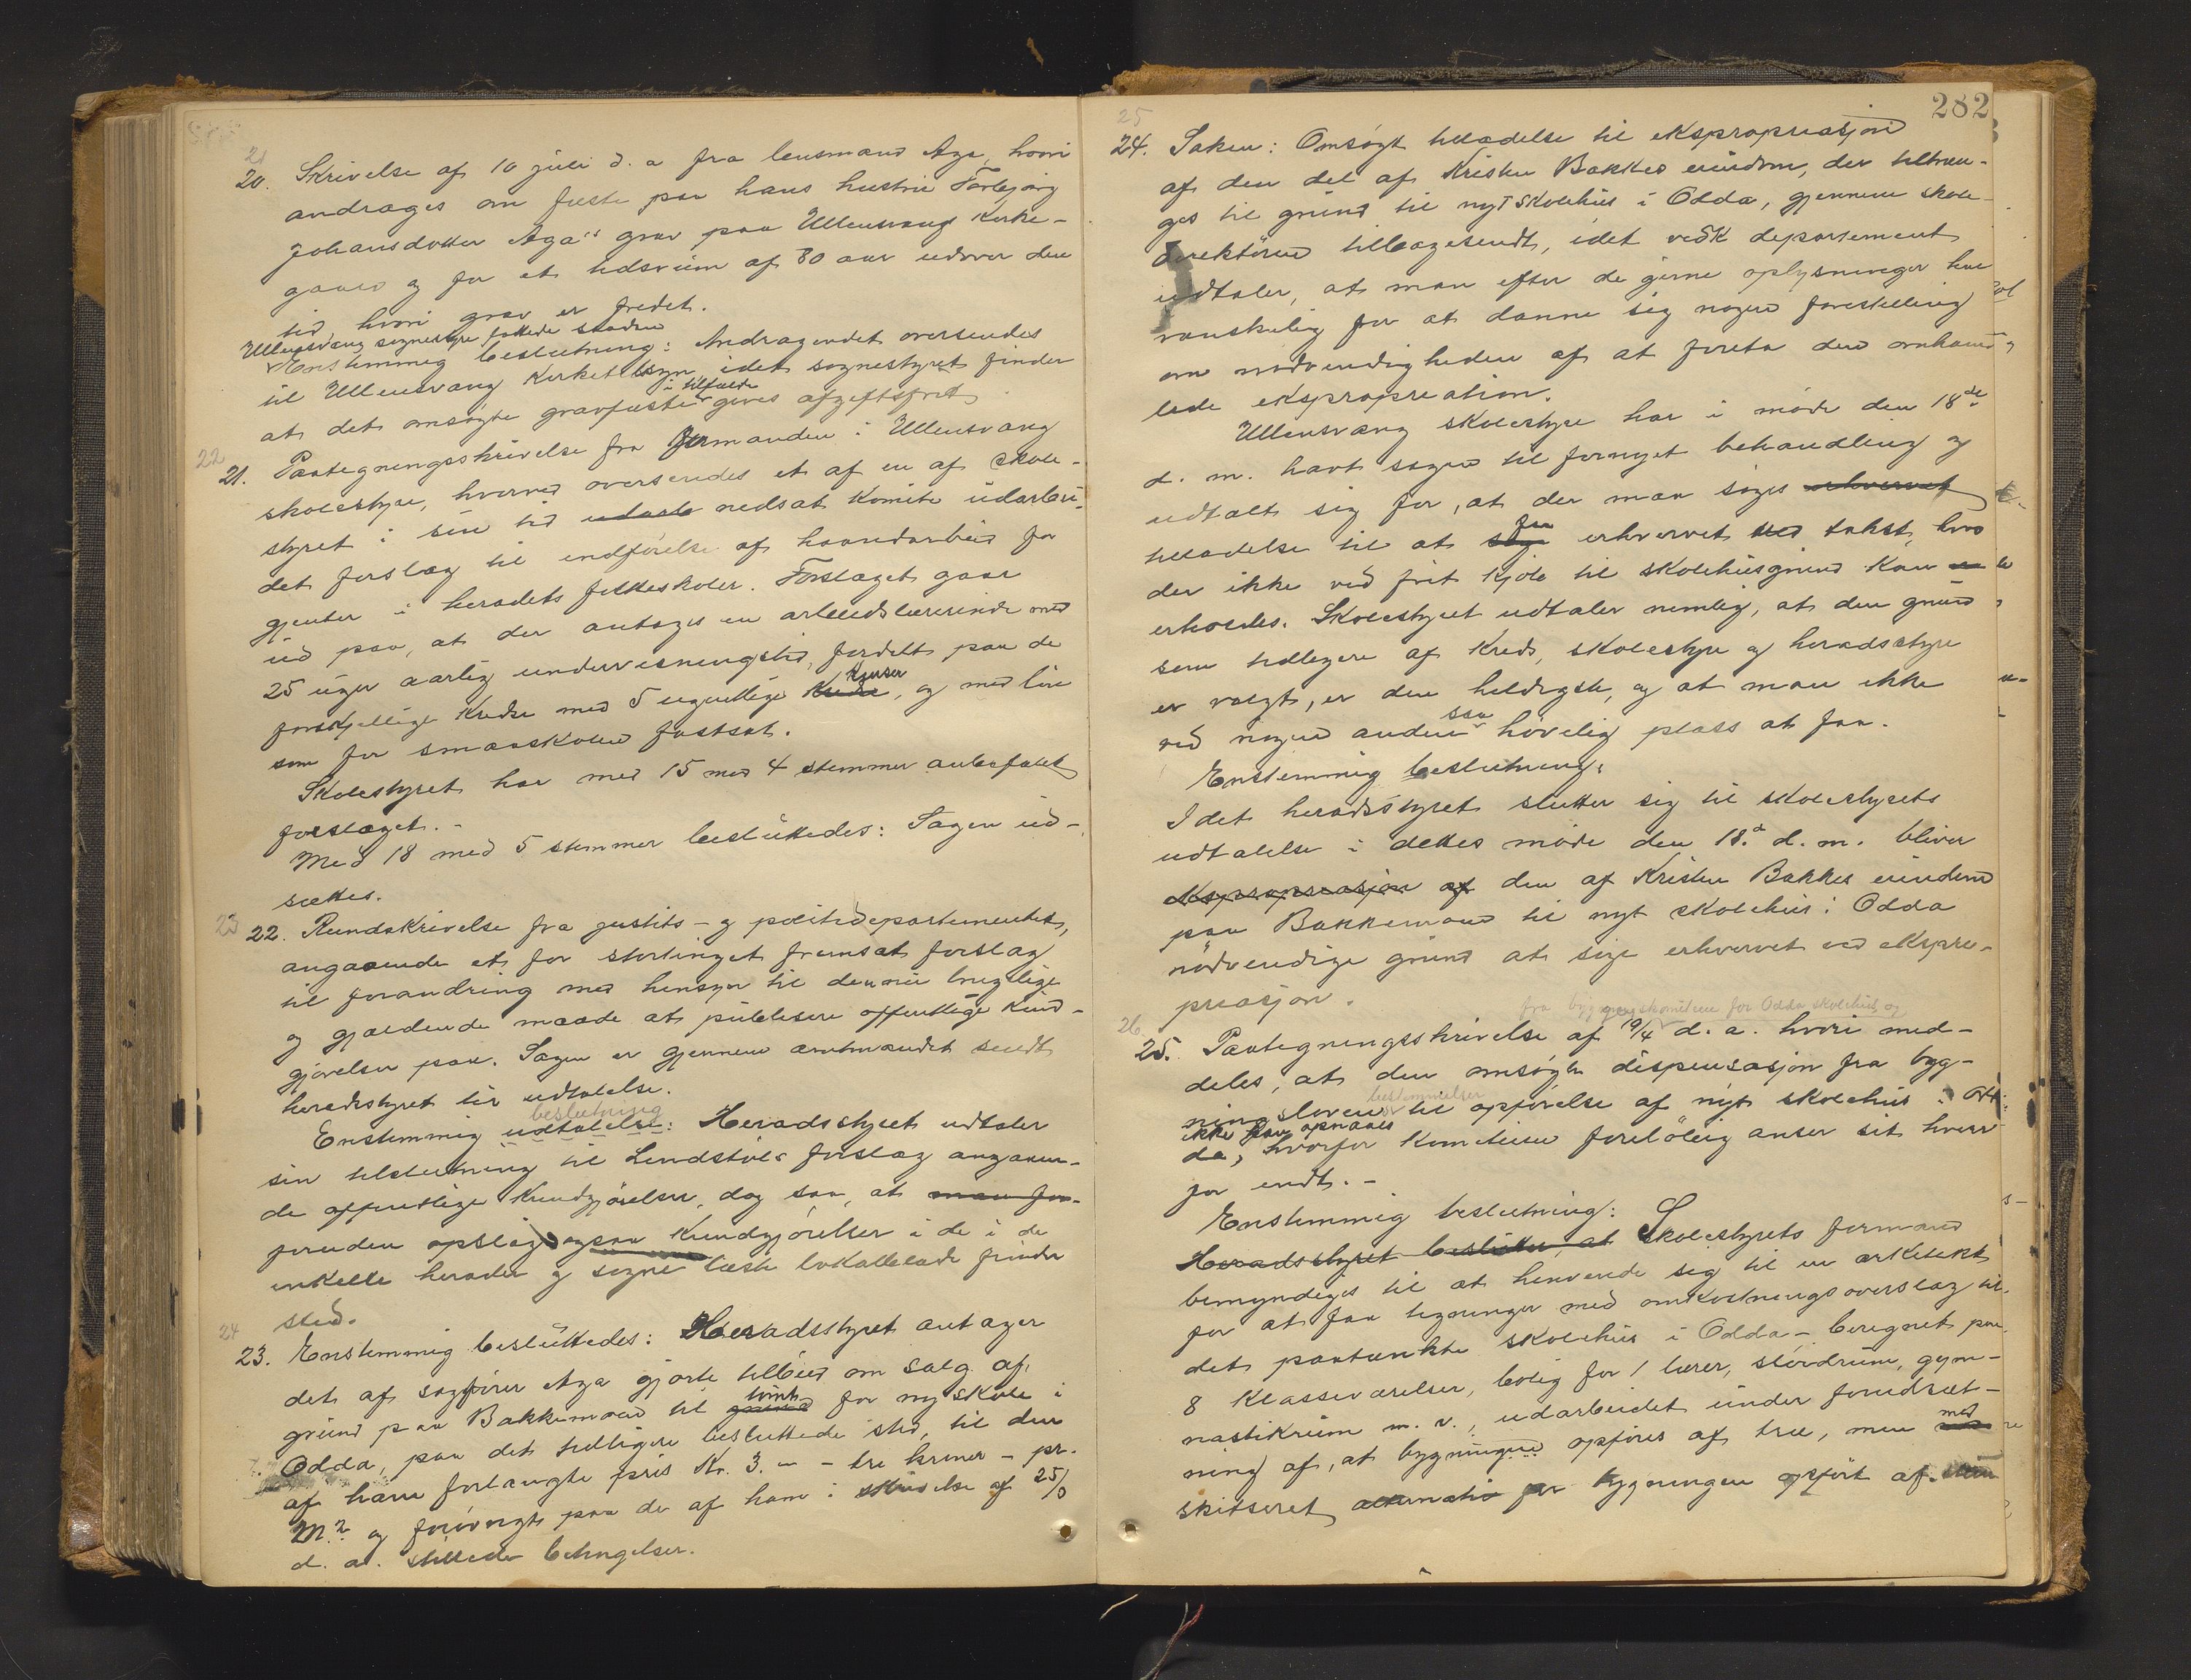 21
20. Skrivelse af 10 juli d. a fra lensmand Aga, hvori
andrages om feste paa hans hustru Torbjørg
Johansdotter Aga's grav paa Ullensvang kirke-
gaard og for et tidsrum af 80 aar udover den
tid, hvori grav er fredet.
Ullensvang sognestyre fattede saadan
Enstemmig beslutning: Andragendet oversendes
til Ullensvang Kirketilsyn, idet sognestyret finder
i tilfælde
at det omsøgte gravfeste gives afgiftsfrit
22
21. Paategningsskrivelse fra formanden i Ullensvang
skolestyre, hvorved oversendes et af en af skole-
styret i sin tid udarb nedsat komite udarbei-
det forslag til indførelse af haandarbeid for
gjenter i heradets folkeskoler. Forslaget gaar
ud paa, at der antages en arbeidslærerinde med
25 uger aarlig undervisningstid, fordelt paa de
kurser
forskjellige kredse med 5 ugentlige kredse, og med løn
som for smaaskolen fastsat.
Skolestyret har med 15 mod 4 stemmer anbefalet
forslaget.-
Med 18 mod 5 stemmer besluttedes: Sagen ud-
sættes.
23
22. Rundskrivelse fra justits- og politidepartementet,
angaaende et for stortinget fremsat forslag
til forandring med hensyn til den nu brugelige
og gjældende maade at publisere offentlige kund-
gjørelser paa. Sagen er gjennem amtmandet sendt
heradsstyret til udtalelse.
beslutning
Enstemmig udtalelse: Heradsstyret udtaler
sin tilslutning til Lindstøls forslag angaaen-
de offentlige kundgjørelser, dog saa, at man for-
foruden opslag ogsaa kundgjørelser i de i de
enkelte herader og sogne læste lokalblade finder
sted.
24
23. Enstemmig besluttedes: Heradsstyret antager
det af sagfører Aga gjorte tilbud om salg af
tomt
grund paa Bakkemoen til grund for ny skole i
Odda, paa det tidligere besluttede sted, til den
af ham forlangte pris Kr. 3.- - tre kroner - pr.
M² og forøvrigt paa de af ham i skrivelse af 25/
d. a. stillede betingelser.
282
25
24. Saken: Omsøgt tilladelse til ekspropriasjon
af den del af Kristen Bakkes eiendom, der tiltræn-
ges til grund til nyt skolehus i Odda, gjennem skole-
direktøren tilbagesendt, idet vedk departement
udtaler, at man efter de givne oplysninger har
vanskelig for at danne sig nogen forestilling
om nødvendigheden af at foreta den omhand-
lede ekspropriation.
Ullensvang skolestyre har i møde den 18de
d. m. havt sagen til fornyet behandling og
udtalt sig for, at der maa søges erhvervet
faa
tilladelse til at søge erhvervet ved takst, hvis
der ikke ved frit kjøb til skolehusgrund kan
erholdes. Skolestyret udtaler nemlig, at den grund
som tidligere af kreds, skolestyre og heradsstyre
er valgt, er den heldigste, og at man ikke
saa
ved nogen anden høvelig plass at faa.
Enstemmig beslutning:
Idet heradsstyret slutter sig til skolestyrets
udtalelse i dettes møde den 18.d d. m. bliver
ekspropriasjon af den af Kristen Bakkes eiendom
paa Bakkemoen til nyt skolehus i Odda
nødvendige grund at søge erhvervet ved ekspro-
priasjon.
fra bygningskomiteen for Odda skolehus og
26
25. Paategningsskrivelse af 19/4 d. a. hvori med-
deles, at den omsøgte dispensasjon fra byg-
bestemmelser
ningsloven til opførelse af nyt skolehus i Od-
ikke kan opnaaes
da, hvorfor komiteen foreløbig anser sit hverv
for endt.-
Enstemmig beslutning:
Heradsstyret beslutter, at Skolestyrets formand
bemyndiges til at henvende sig til en arkitekt
for at faa tegninger med omkostningsoverslag til
det paatænkte skolehus i Odda - beregnet paa
8 klasseværelser, bolig for 1 lærer, sløidrum, gym-
nastikrum m. v., udarbeidet under forudsæt-
med
ning af, at bygningen opføres af træ, men
skitseret alternativ for bygningen opført af